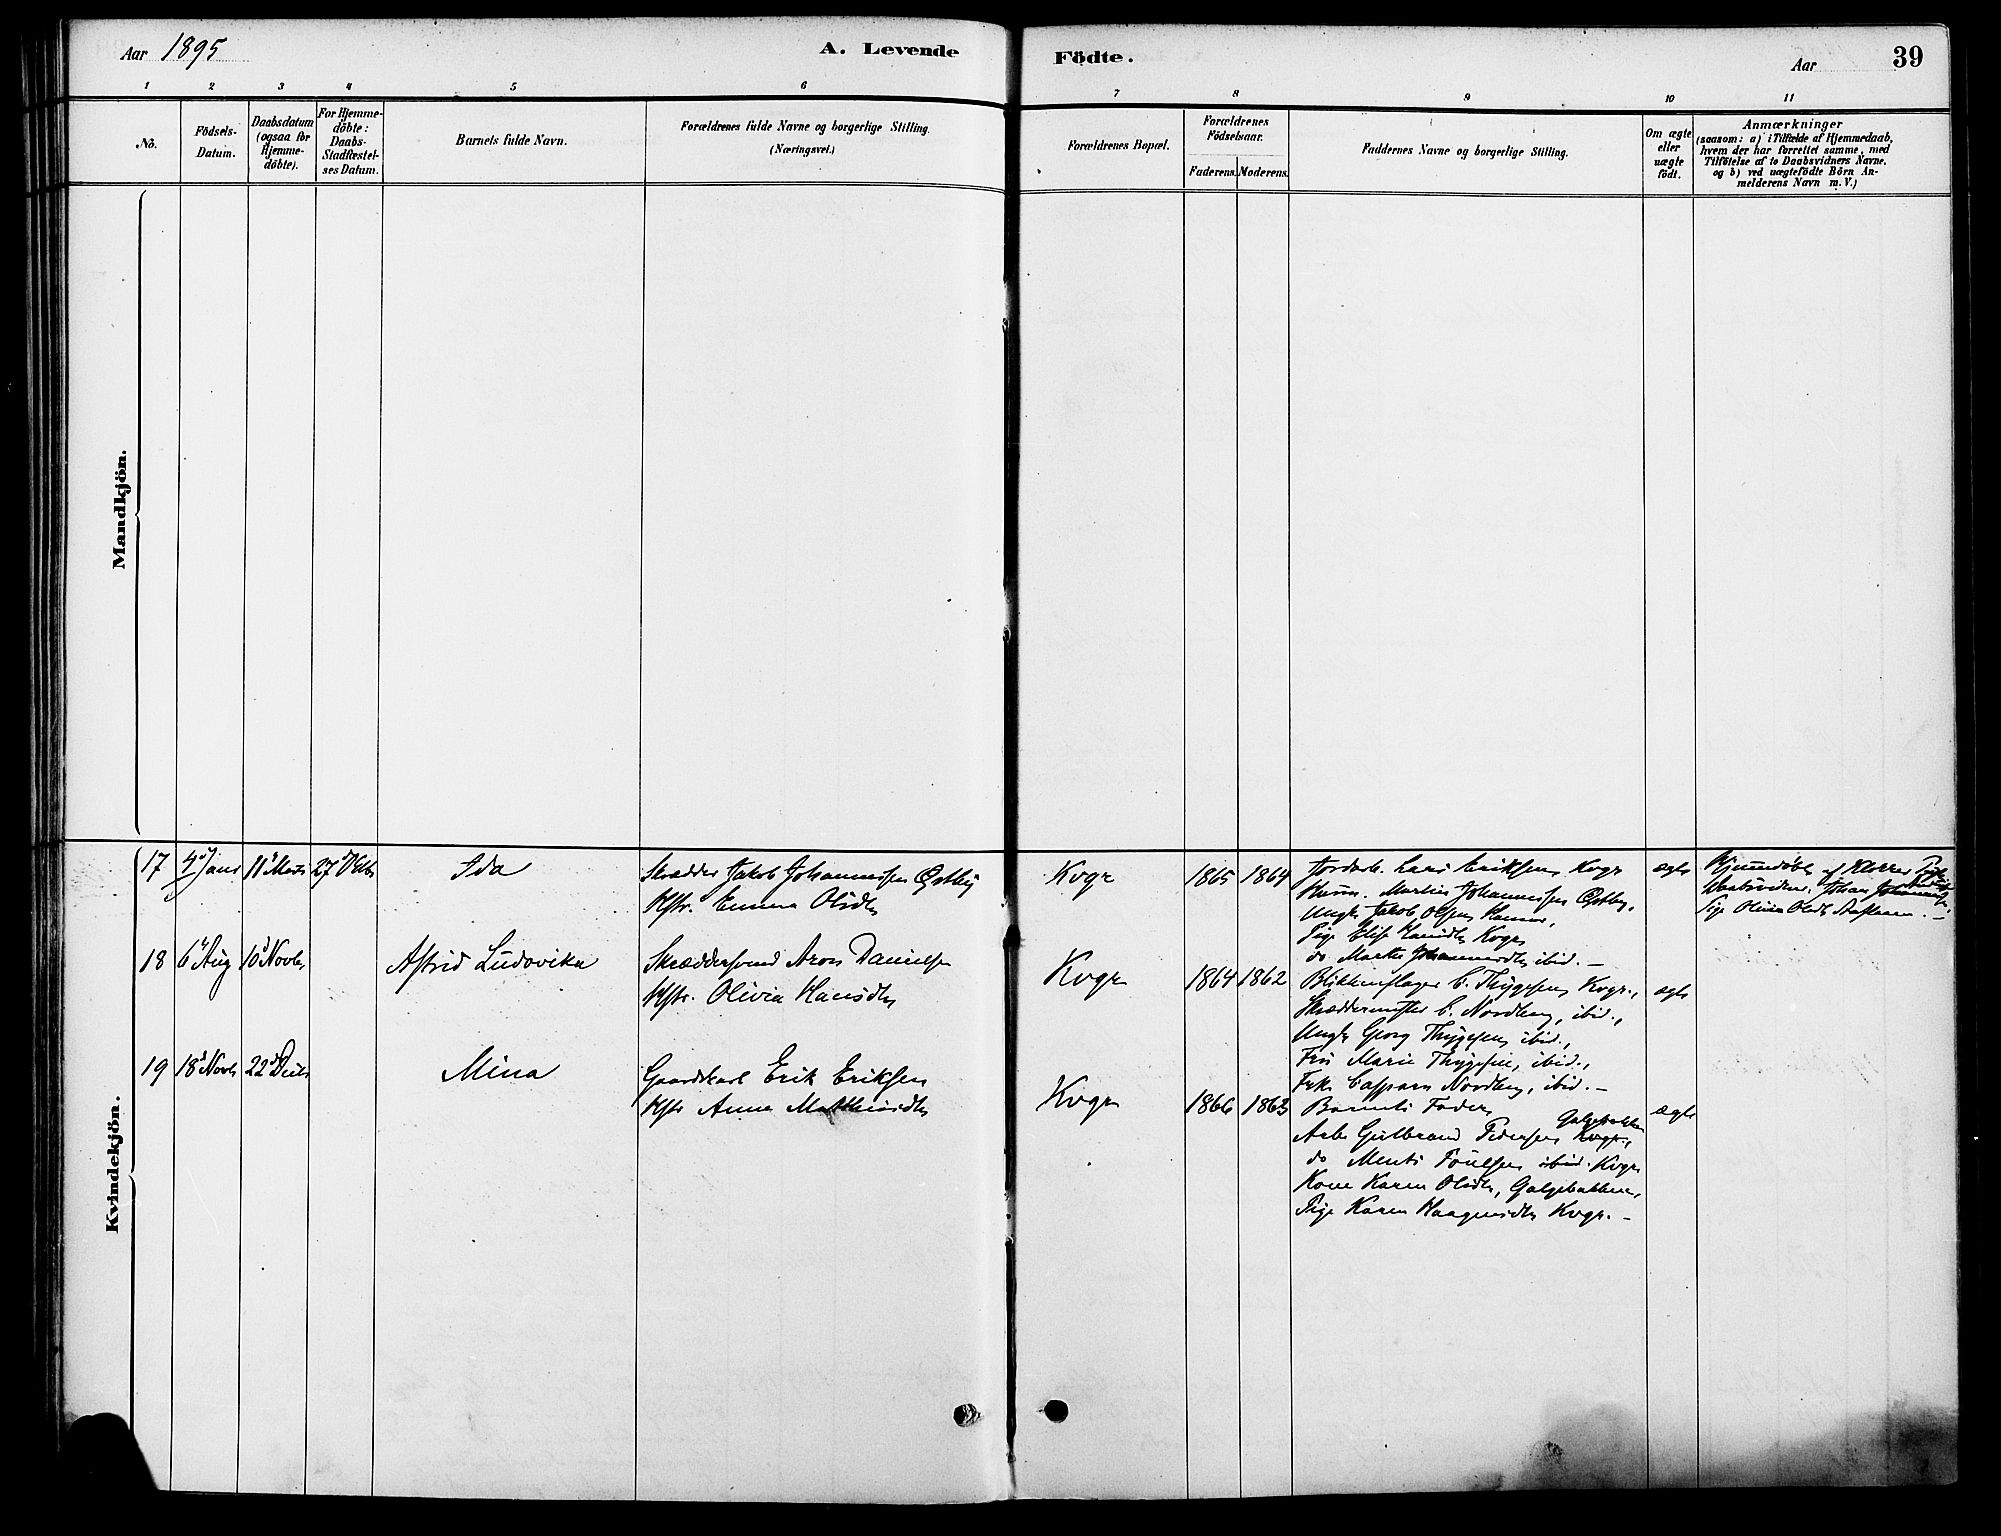 Aar 1895
A. Levende
Födte.
Aar
39
1 2 3 4 5 6 7 8 9 10 11
No.
Födsels-
Datum.
Daabsdatum
(ogsaa for
Hjemme-
döbte).
For Hjemme-
döbte:
Daabs-
Stadfæstel-
ses Datum.
Barnets fulde Navn.
Forældrenes fulde Navne og borgerlige Stilling.
(Næringsvei.)
Forældrenes Bopæl.
Forældrenes
Födselsaar.
Faderens. Moderens.
Faddernes Navne og borgerlige Stilling.
Om ægte
eller
uægte
födt.
Anmærkninger
(saasom: a) i Tilfælde af Hjemmedaab,
hvem der har forrettet samme, med
Tilföielse af to Daabsvidners Navne,
og b) ved uægtefödte Börn An-
melderens Navn m. V.)
Mandkjön.
Kvindekjön.
17 4d Janr 11d Marts 27d Oktbr Ida
Skrædder Jakob Johannessen Østby
Hstr. Emma Olsdtr
Kvgr 1865 1864
Jordarb. Lars Eriksen Kvgr
Husm. Martin Johannessen Østby,
Ungk. Jakob Olsen
Pige Elise Hansdtr Kvgr
do Marthe Johannesdtr ibid. -
ægte
Hjemmedöbt af Klokker
Daabsvidner: Johan Johannessen
Pige Olivia Olsdtr
18 6d Aug 10d Novbr Astrid Ludovika
Skræddersvend Aron Danielsen
Hstr. Olivia Hansdtr
Kvgr 1864 1862
Blikkenslager C. Thygesen Kvgr.,
Skræddermester C. Nordberg, ibid.,
Ungk Georg Thygesen ibid.,
Fru Marie Thygesen, ibid.,
Frk Nordberg, ibid. -
ægte
19 18d Novbr 22d Decbr Mina
Gaardskarl Erik Eriksen
Hstr Anne Mathiasdtr
Kvgr 1866 1863
Barnets Fader
Galgebakken
Arb. Gulbrand Pedersen Kvgr.,
do Ments Poulsen ibid. Kvgr
Kone Karen Olsdtr, Galgebakken,
Pige Karen Haagensdtr Kvgr. -
ægte